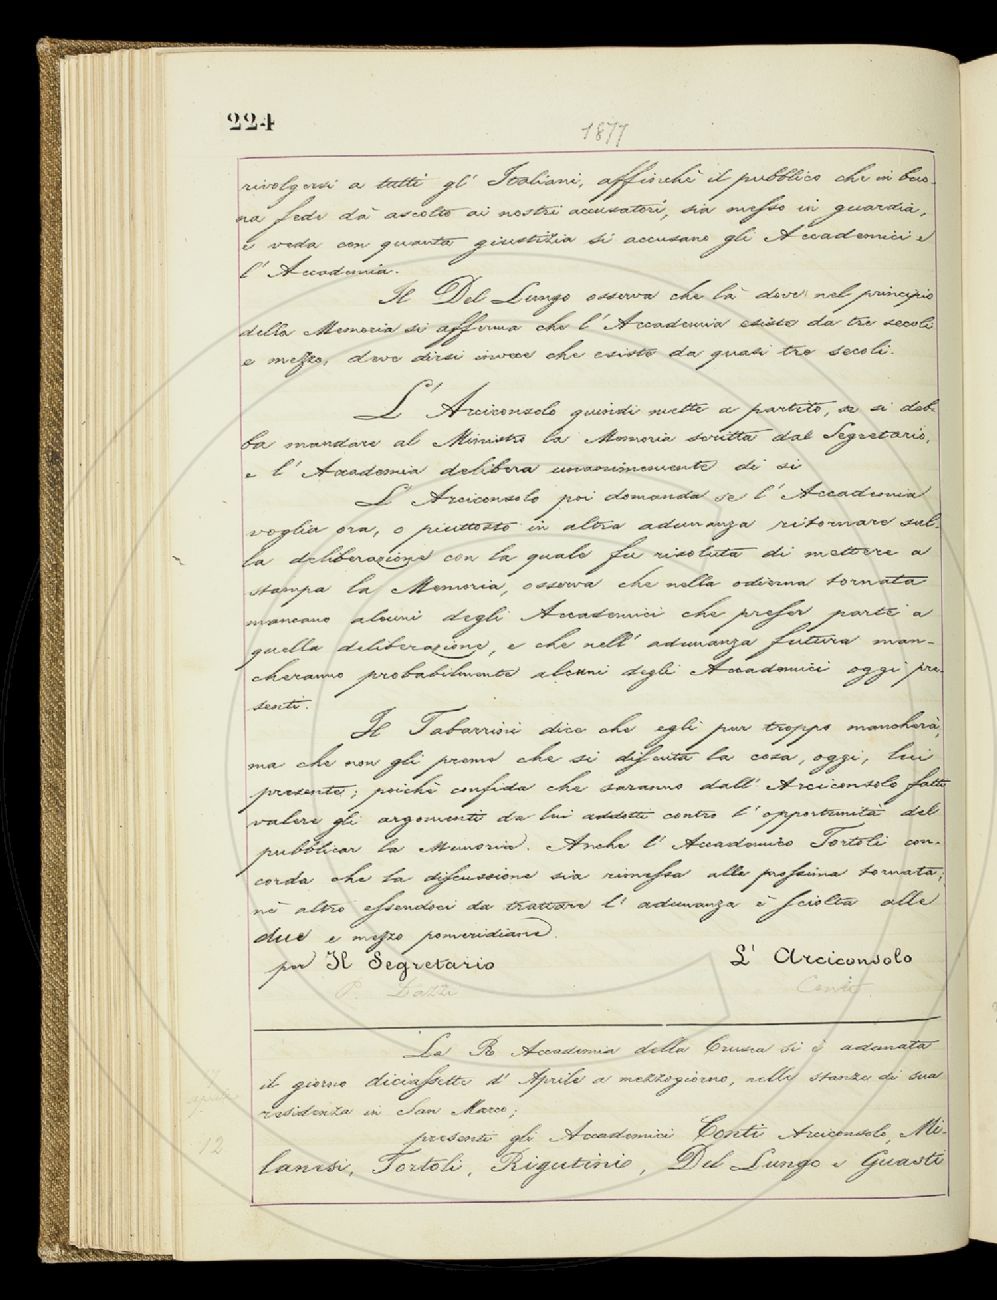 224
1877
rivolgersi a tutti gl' Italiani, affinchè il pubblico che in buo-
na fede dà ascolto ai nostri accusatori, sia messo in guardia,
e veda con quanta giustizia si accusano gli Accademici e
l' Accademia.
Il Del Lungo osserva che là dove nel principio
della Memoria si afferma che l' Accademia esiste da tre secoli
e mezzo, deve dirsi invece che esiste da quasi tre secoli.
L' Arciconsolo quindi mette a partito, se si deb-
ba mandare al Ministro la Memoria scritta dal Segretario,
e l' Accademia delibera unanimemente di sì
L' Arciconsolo poi domanda se l' Accademia
voglia ora, o piuttosto in altra adunanza ritornare sul-
la deliberazione con la quale fu risoluto di mettere a
stampa la Memoria, osserva che nella odierna tornata
mancano alcuni degli Accademici che preser parte a
quella deliberazione, e che nell' adunanza futura man-
cheranno probabilmente alcuni degli Accademici oggi pre-
senti.
Il Tabarrini dice che egli pur troppo mancherà,
ma che non gli preme che si discuta la cosa, oggi, lui
presente; poichè confida che saranno dall' Arciconsolo fatti
valere gli argomenti da lui addotti contro l' opportunità del
pubblicar la Memoria. Anche l' Accademico Tortoli con-
corda che la discussione sia rimessa alla prossima tornata;
nè altro essendoci da trattare l' adunanza è sciolta alle
due e mezzo pomeridiane.
per Il Segretario L' Arciconsolo
Conti
La R Accademia della Crusca si è adunata
il giorno diciassette d' Aprile a mezzogiorno, nelle stanze di sua
residenza in San Marco;
presenti gli Accademici Conti Arciconsolo, Mi-
lanesi, Tortoli, Rigutini, Del Lungo e Guasti
17
aprile
12